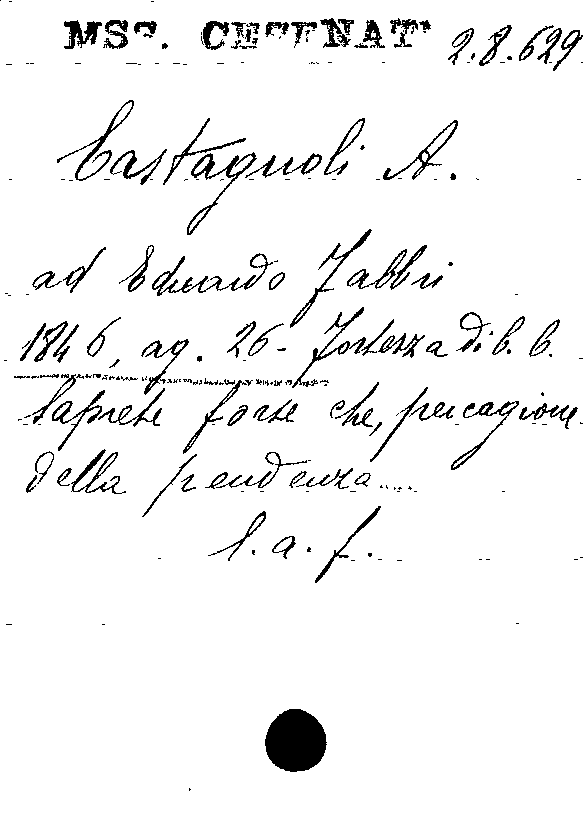 MSS. CESENATI 2.8.629
Castagnoli A.
ad Eduardo Fabbri
1846, ag. 26 - Fortezza di C. C.
Saprete forse che, per cagione
della pendenza....
l. a. f.